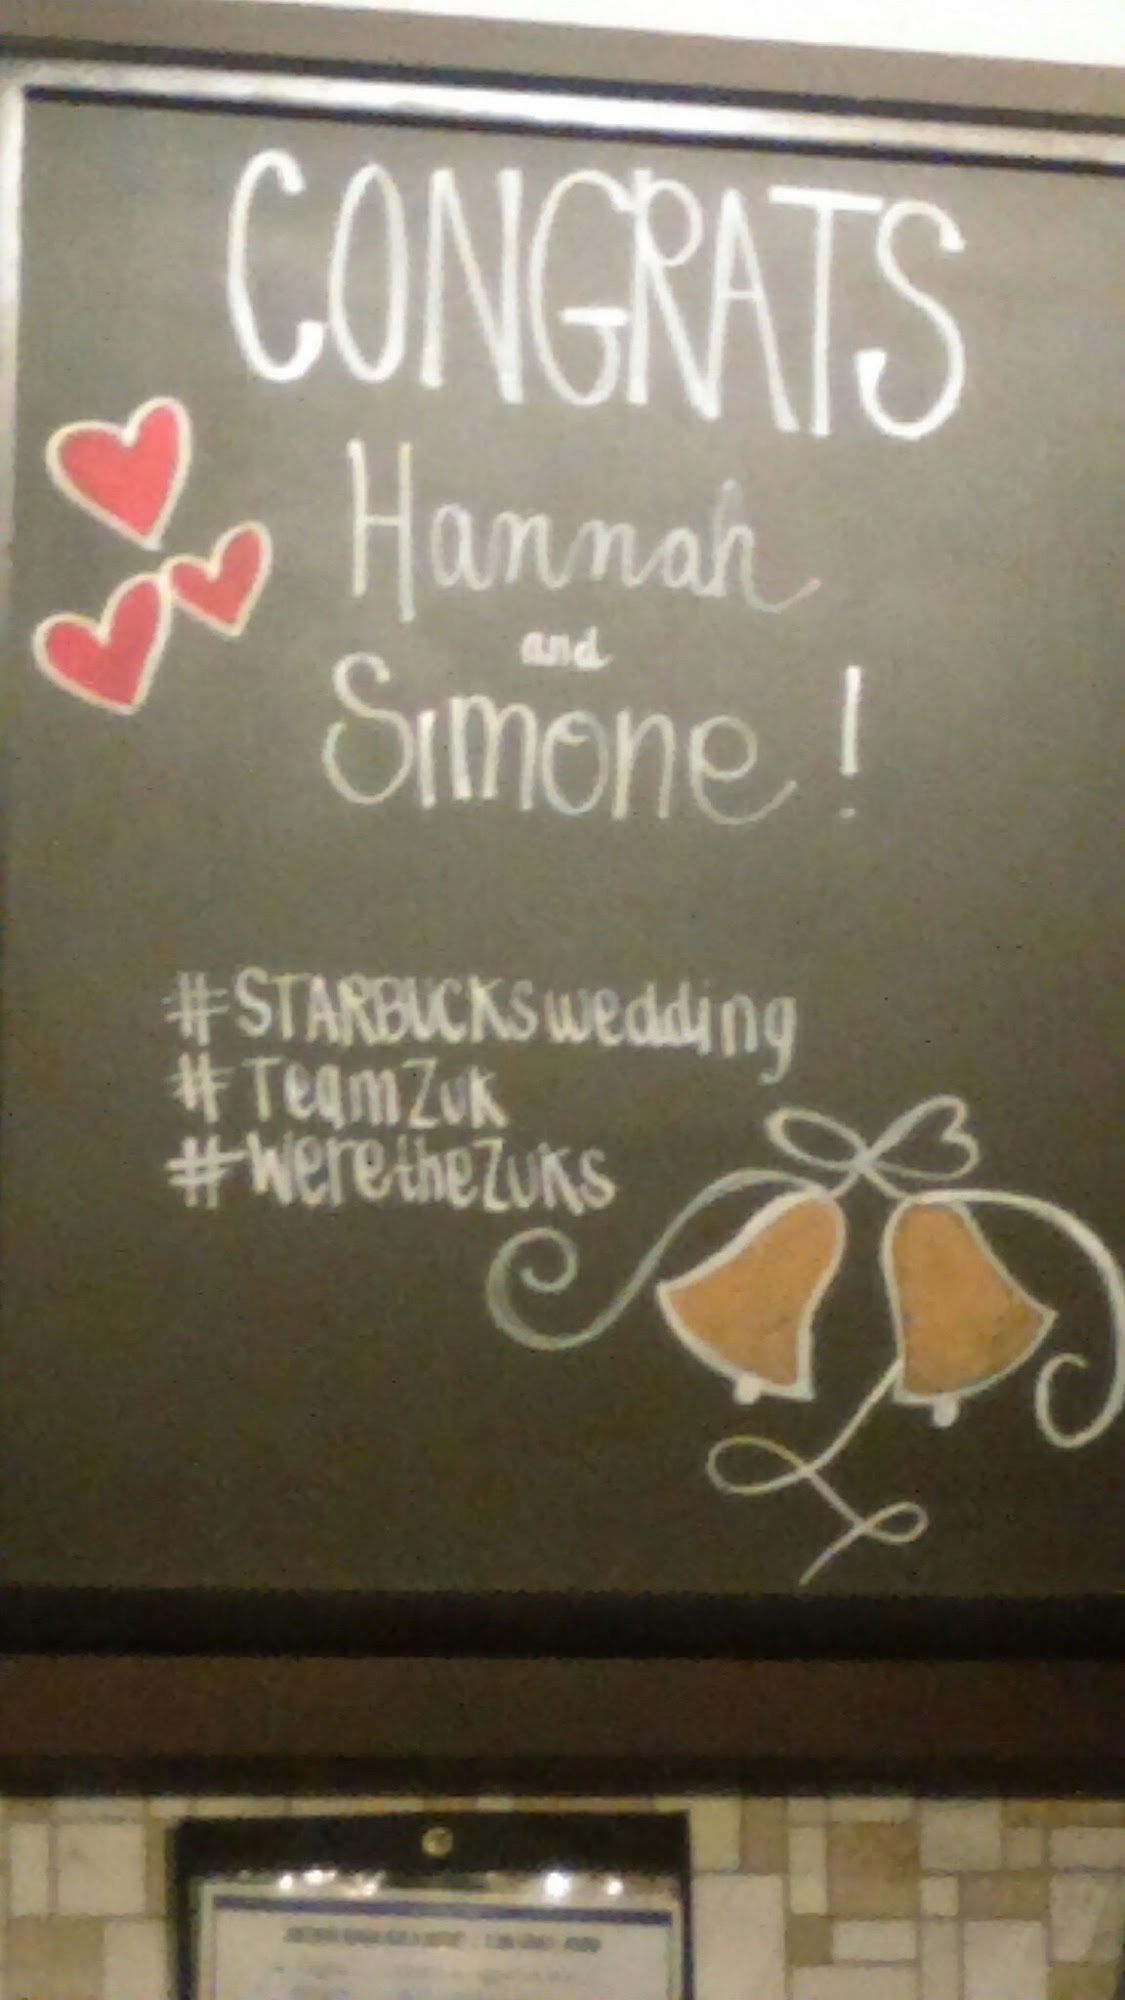 CONGRATS
Hannah
and
Simone!
#STARBUCKSwedding
#TeamZuk
#WeretheZuks